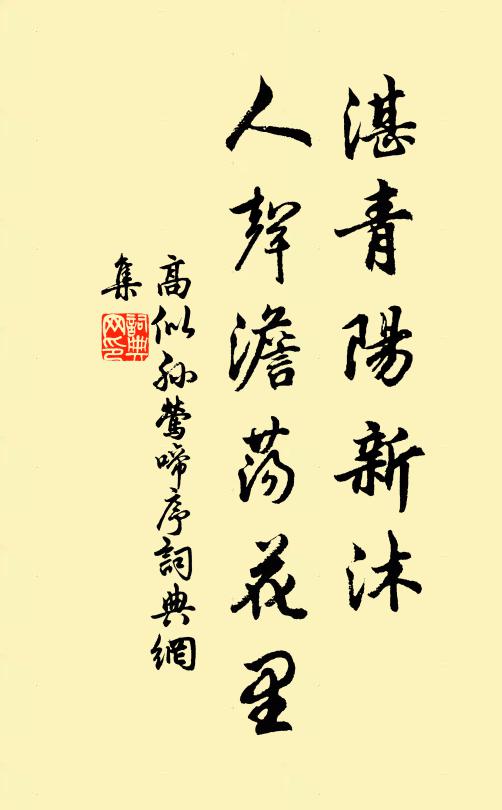 湛青陽新沐
人聲澹蕩花里
高似孫鶯啼序詞典網
集
詞典
网印